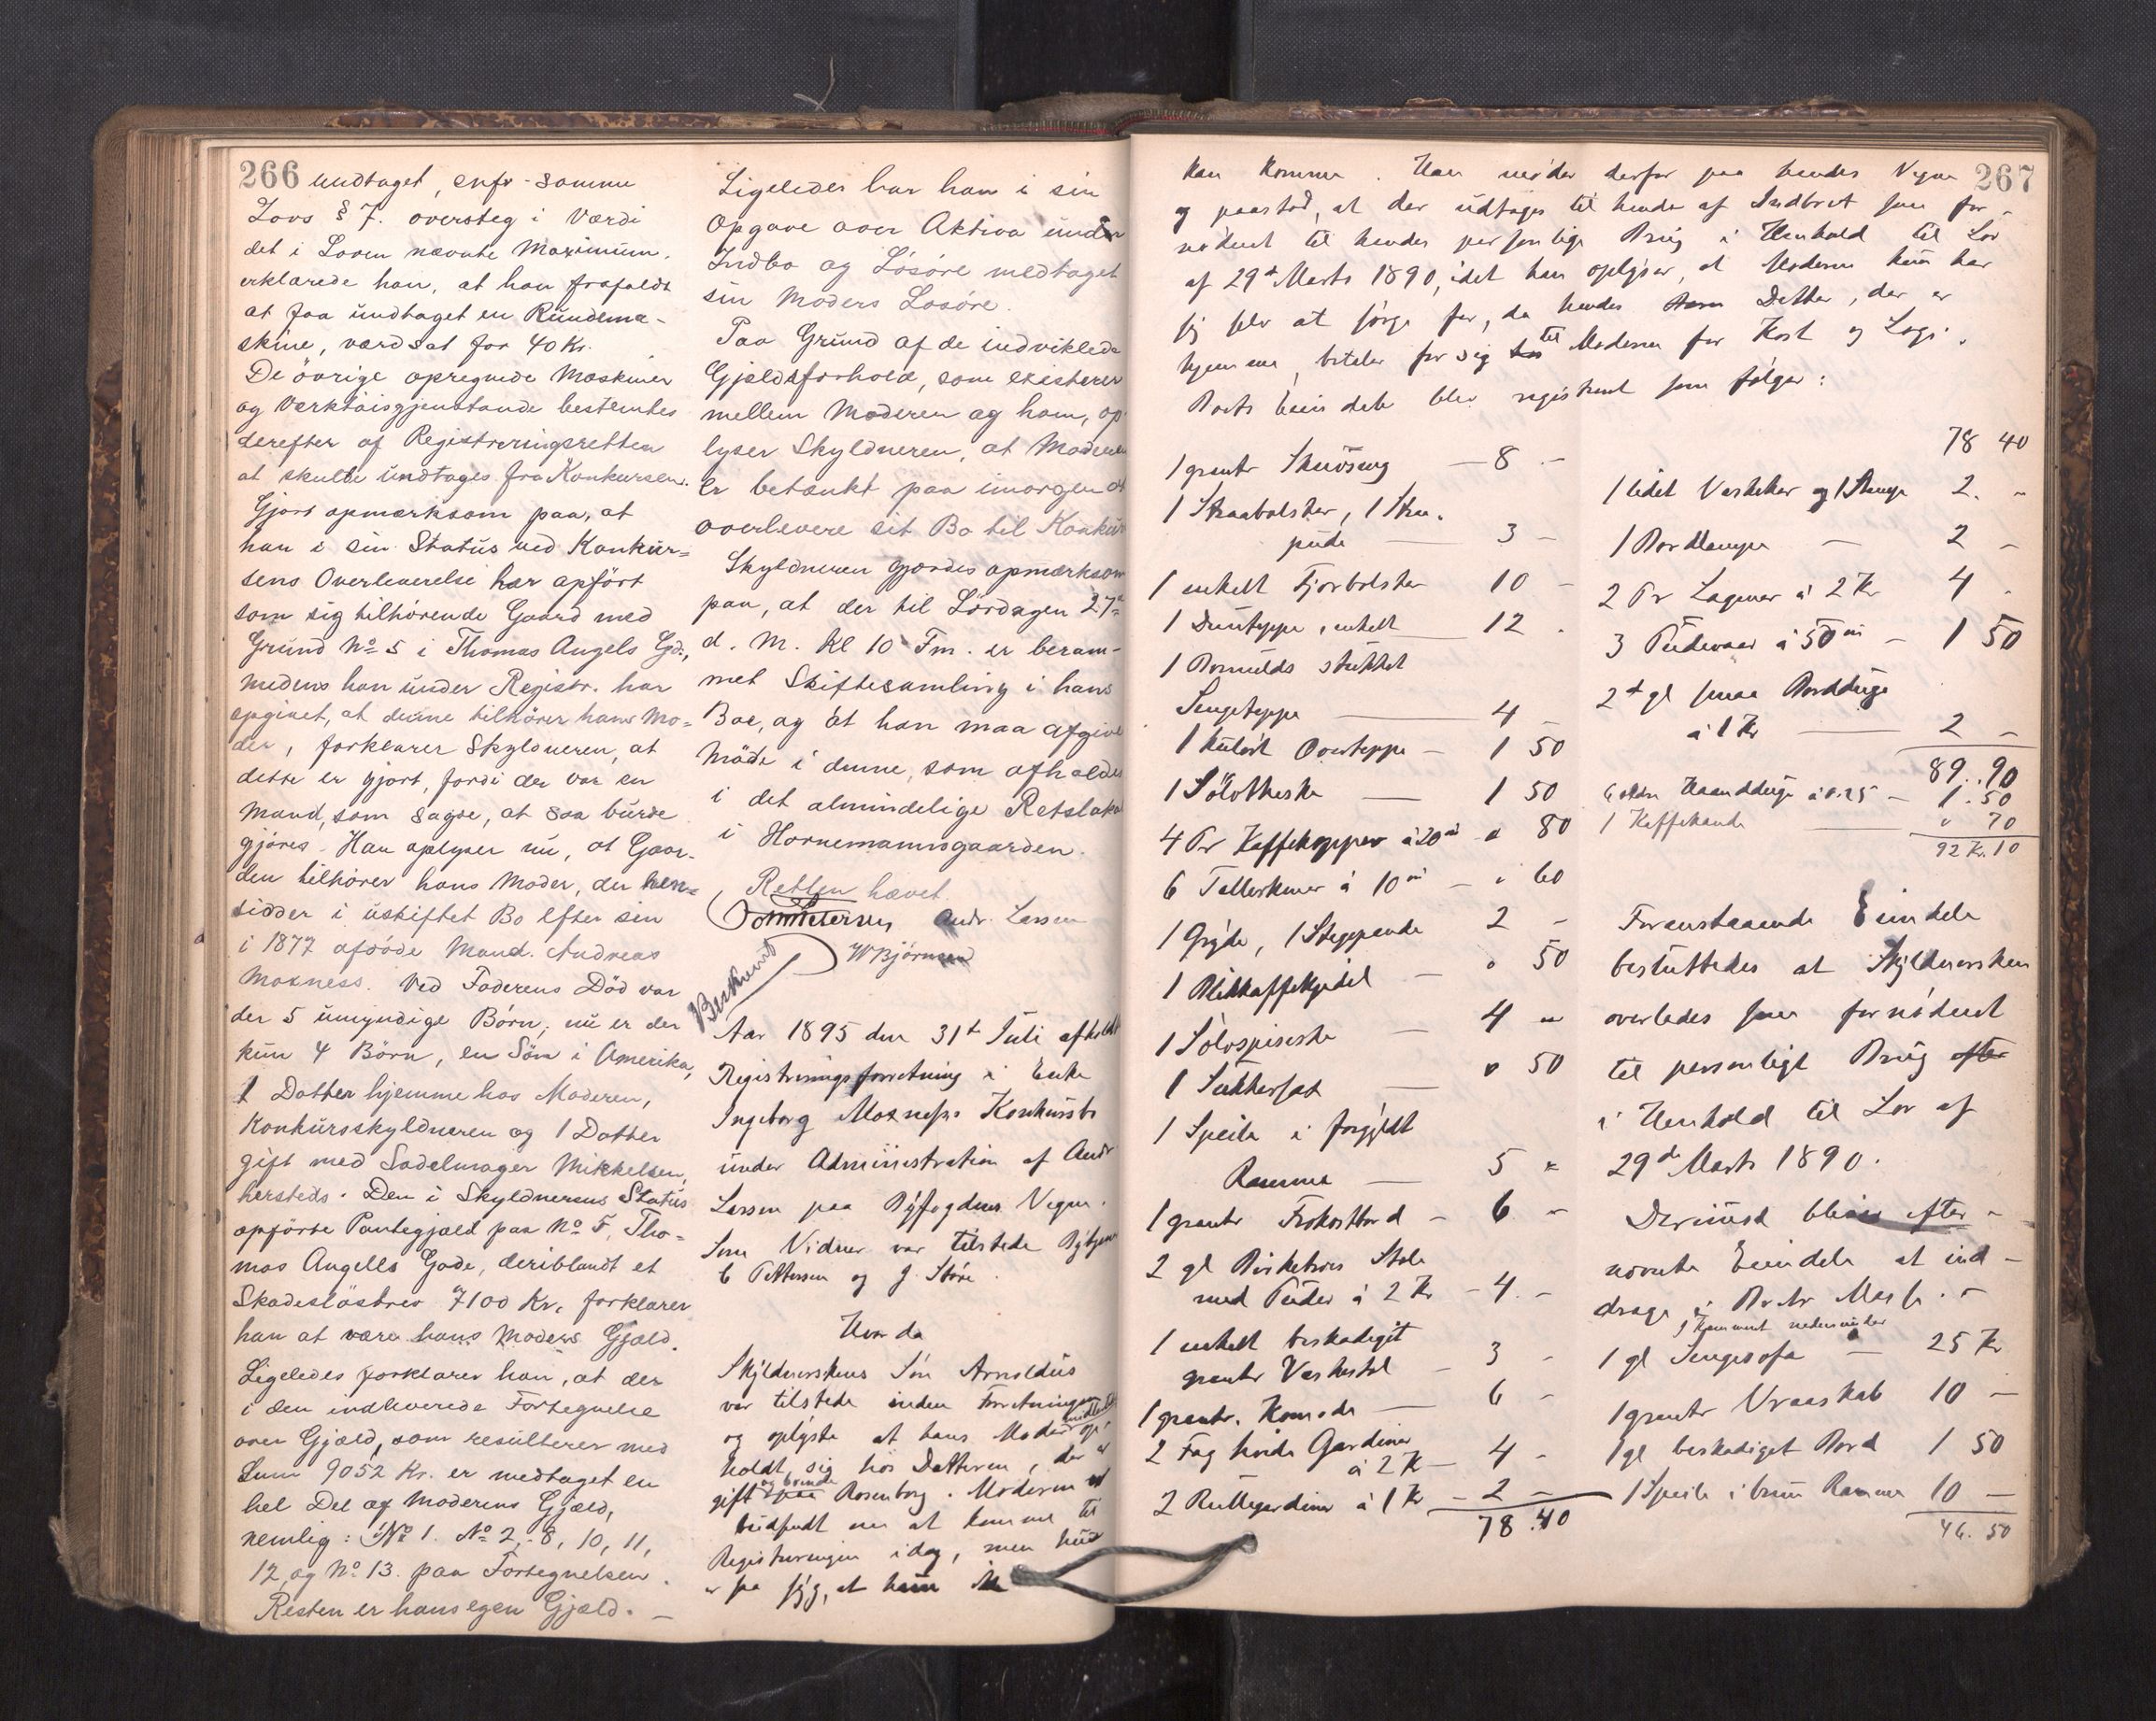 266 undtaget, cnfr. samme
Lovs § 7. oversteg i Værdi
det i Loven nævnte Maximum,
erklærede han, at han frafaldt
at faa undtaget en Rundema-
skine, værdsat for 40 Kr.
De øvrige opregnede Maskiner
og Værktøisgjenstande bestemtes
derefter af Registreringsretten
at skulle undtages fra Konkursen.
Gjort opmærksom paa, at
han i sin Status ved Konkur=
sens Overleverelse har opført
som sig tilhørende Gaard med
Grund No 5 i Thomas Angels Gde,
medens han under Registr. har
opgivet, at denne tilhører hans Mo=
der, forklarer Skyldneren, at
dette er gjort, fordi der var en
Mand, som sagde, at saa burde
gjøres. Han oplyser nu, at Gaar-
den tilhører hans Moder, der hen=
sidder i uskiftet Bo efter sin
i 1877 afdøde Mand. Andreas
Moxness. Ved Faderens Død var
der 5 umyndige Børn, nu er der
kun 4 Børn, en Søn i Amerika,
1 Datter hjemme hos Moderen,
Konkursskyldneren og 1 Datter
gift med Sadelmager Mikkelsen,
hersteds. Den i Skyldnerens Status
opførte Pantegjæld paa No 5, Tho=
mas Angells Gade, deriblandt et
Skadesløsbrev 7100 Kr, forklarer
han at være hans Moders Gjæld.
Ligeledes forklarer han, at der
i den indleverede Fortegnelse
over Gjæld, som resulterer med
Sum 9052 Kr. er medtaget en
hel Del af Moderens Gjæld,
nemlig: No 1. No 2, 8, 10, 11,
12, og No 13. paa Fortegnelsen.
Resten er hans egen Gjæld. —
Ligeledes har han i sin
Opgave over Aktiva under
Indbo og Løsøre medtaget
sin Moders Løsøre.
Paa Grund af de indviklede
Gjældsforhold, som existerer
mellem Moderen og ham, op-
lyser Skyldneren, at Moderen
er betænkt paa imorgen at
overlevere sit Bo til Konkurs
Skyldneren gjordes opmærksom
paa, at der til Lørdagen 27de
d. M. Kl 10 Fm. er beram-
met Skiftesamling i hans
Bo, og at han maa afgive
Møde i denne, som afholdes
i det almindelige Retslokale
i Hornemannsgaarden.
Retten hævet
Andr. Larsen
W Bjørnsen
Beskrevet
Aar 1895 den 31t Juli afholdt
Registreringsforretning i Enke
Ingeborg Moxness Konkursbo
under Administration af Andr
Larsen paa Byfogdens Vegne.
Som Vidner var tilstede
C Pettersen og J. Støre.
Hvorda
Skyldnerskens Søn Arnoldus
var tilstede under Forretningen
og oplyste at hans Moder op-
holdt sig hos Datteren, der er
gift og boende Rosenborg. Moderen
budsendt om at komme til
Registreringen idag, men hun
er saa syg, at hun ikke
267
kan komme. Han møder derfor paa hendes Vegne
og paastod, at der udtages til hende af Indboet som for-
nødent til hendes personlige Brug i Henhold til Lov
af 29d Marts 1890, idet han oplyser, at Moderen kun har
sig selv at sørge for, da hendes Datter, der er
hjemme, betaler for sig til Moderen for Kost og Logi.
Boets Eiendele blev registreret som følger:
1 grønt Skuvseng — 8 –
1 Straabolster, 1 Straa-
pude — 3 –
1 enkelt Fjørbolster 10 –
1 Duunteppe, enkelt 12 .
1 Bomulds strikket
Sengeteppe — 4 –
1 kulørt Overteppe – 1 50
1 Sølvtheske — 1 50
4 Pr Kaffekopper à 20 øre " 80
6 Tallerkener à 10 øre – " 60
1 Gryde, 1 Stegpande 2 –
1 Blikkaffekjedel — " 50
1 Sølvspiseske — 4 "
1 Sukkersax — " 50
1 Speile i forgyldt
Ramme — 5 "
1 grønt Frokostbord – 6 –
2 gl Birketræs Stole
med Puder à 2 Kr – 4. –
1 enkelt beskadiget
grønt Vaskestol – 3 –
1 grønt. Komode — 6 –
2 Fag hvide Gardiner
à 2 Kr – 4 –
2 Rullegardiner à 1 Kr – 2 –
78.40
78 40
1 lidet Vaskekar og 1 Stamp 2. –
1 Bordlampe — 2 –
2 Pr Lagener à 2 Kr 4 .
3 Pudevaar à 50 øre – 1 50
2 gl smaa Bordduge
à 1 Kr — 2 –
89.90
6 Haandduge à 0.25 – 1.50
1 Kaffekande — " 70
92 Kr. 10
Foranstaaende Eiendele
besluttedes at Skyldnersken
overlodes som fornødent
til personligt Brug efter
i Henhold til Lov af
29d Marts 1890.
Derimod bliver efter-
nævnte Eiendele at ind-
drage i Boets Masse. –
1 Kammert nedenunder
1 gl Sengesofa — 25 Kr
1 grønt Vraaskab 10 –
1 gl beskadiget Bord 1 50
1 Speile i brun Ramme 10 –
46.50